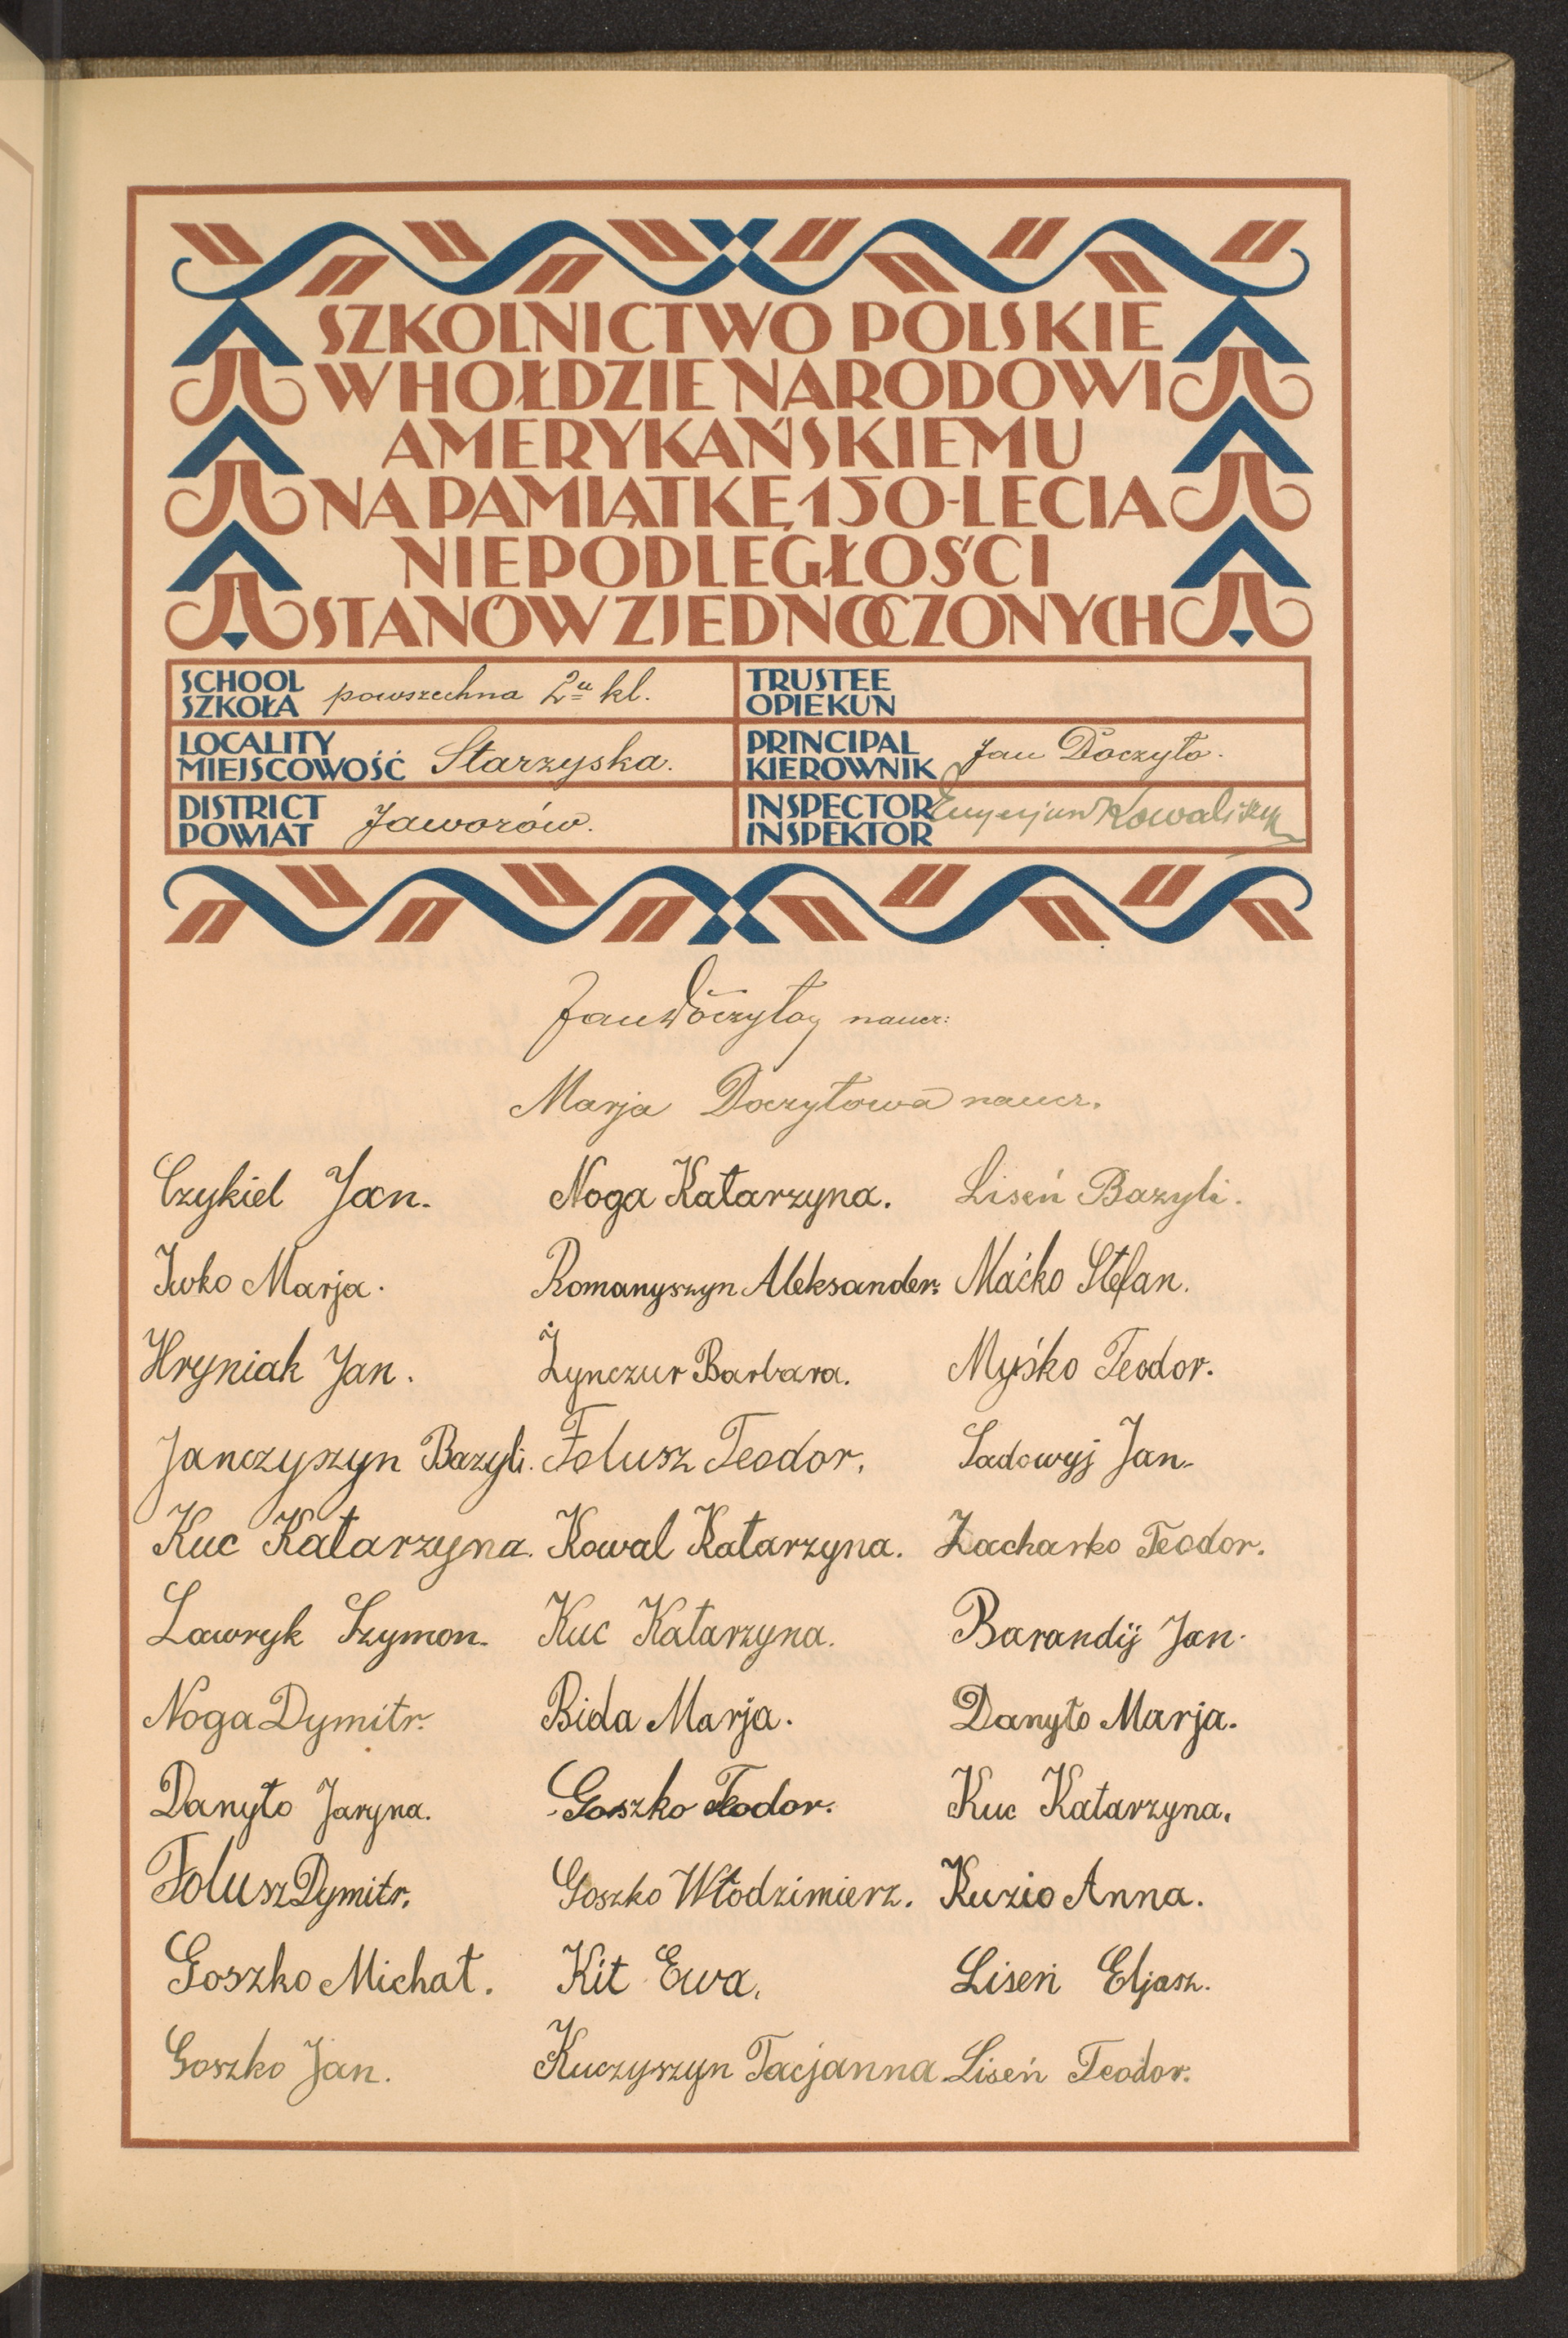 SZKOLNICTWO POLSKIE
W HOŁDZIE NARODOWI
AMERYKAŃSKIEMU
NA PAMIĄTKĘ 150-LECIA
NIEPODLEGŁOŚCI
STANÓW ZJEDNOCZONYCH
SCHOOL
SZKOŁA powszechna 2u kl.
TRUSTEE
OPIEKUN
LOCALITY
MIEJSCOWOŚĆ Starzyska.
PRINCIPAL
KIEROWNIK Jan Doczyło.
DISTRICT
POWIAT Jaworów.
INSPECTOR
INSPEKTOR Eugenjusz
Jan Doczyło naucz:
Marja Doczyłowa naucz.
Czykiel Jan. Noga Katarzyna. Liseń Bazyli.
Iwko Marja. Romanyszyn Aleksander. Maćko Stefan.
Hryniak Jan. Żynczur Barbara. Myśko Teodor.
Janczyszyn Bazyli. Folusz Teodor. Sadowyj Jan.
Kuc Katarzyna. Kowal Katarzyna. Zacharko Teodor.
Ławryk Szymon. Kuc Katarzyna. Barandij Jan.
Noga Dymitr. Bida Marja. Danyło Marja.
Danyło Jaryna. Goszko Teodor. Kuc Katarzyna.
Folusz Dymitr. Goszko Włodzimierz. Kuzio Anna.
Goszko Michał. Kit Ewa. Liseń Eljasz.
Goszko Jan. Kuczyszyn Tacjanna. Liseń Teodor.